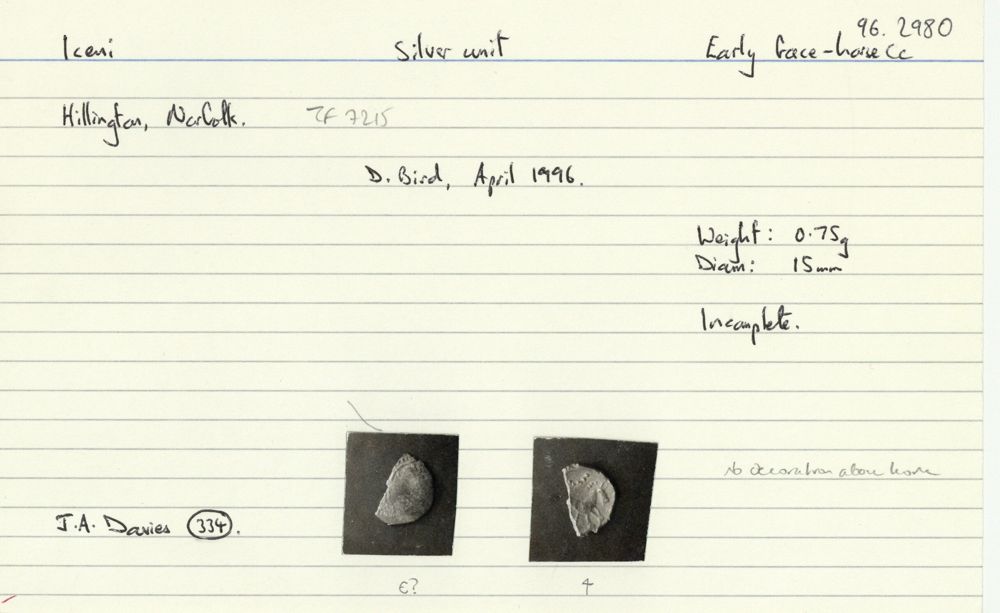 96. 2980
Iceni Silver unit Early face-horse Cc
Hillington, Norfolk. TF 7215
D. Bird, April 1996.
Weight: 0.75g
Diam: 15mm
Incomplete.
No decoration above horse
J.A. Davies 334.
E? 4